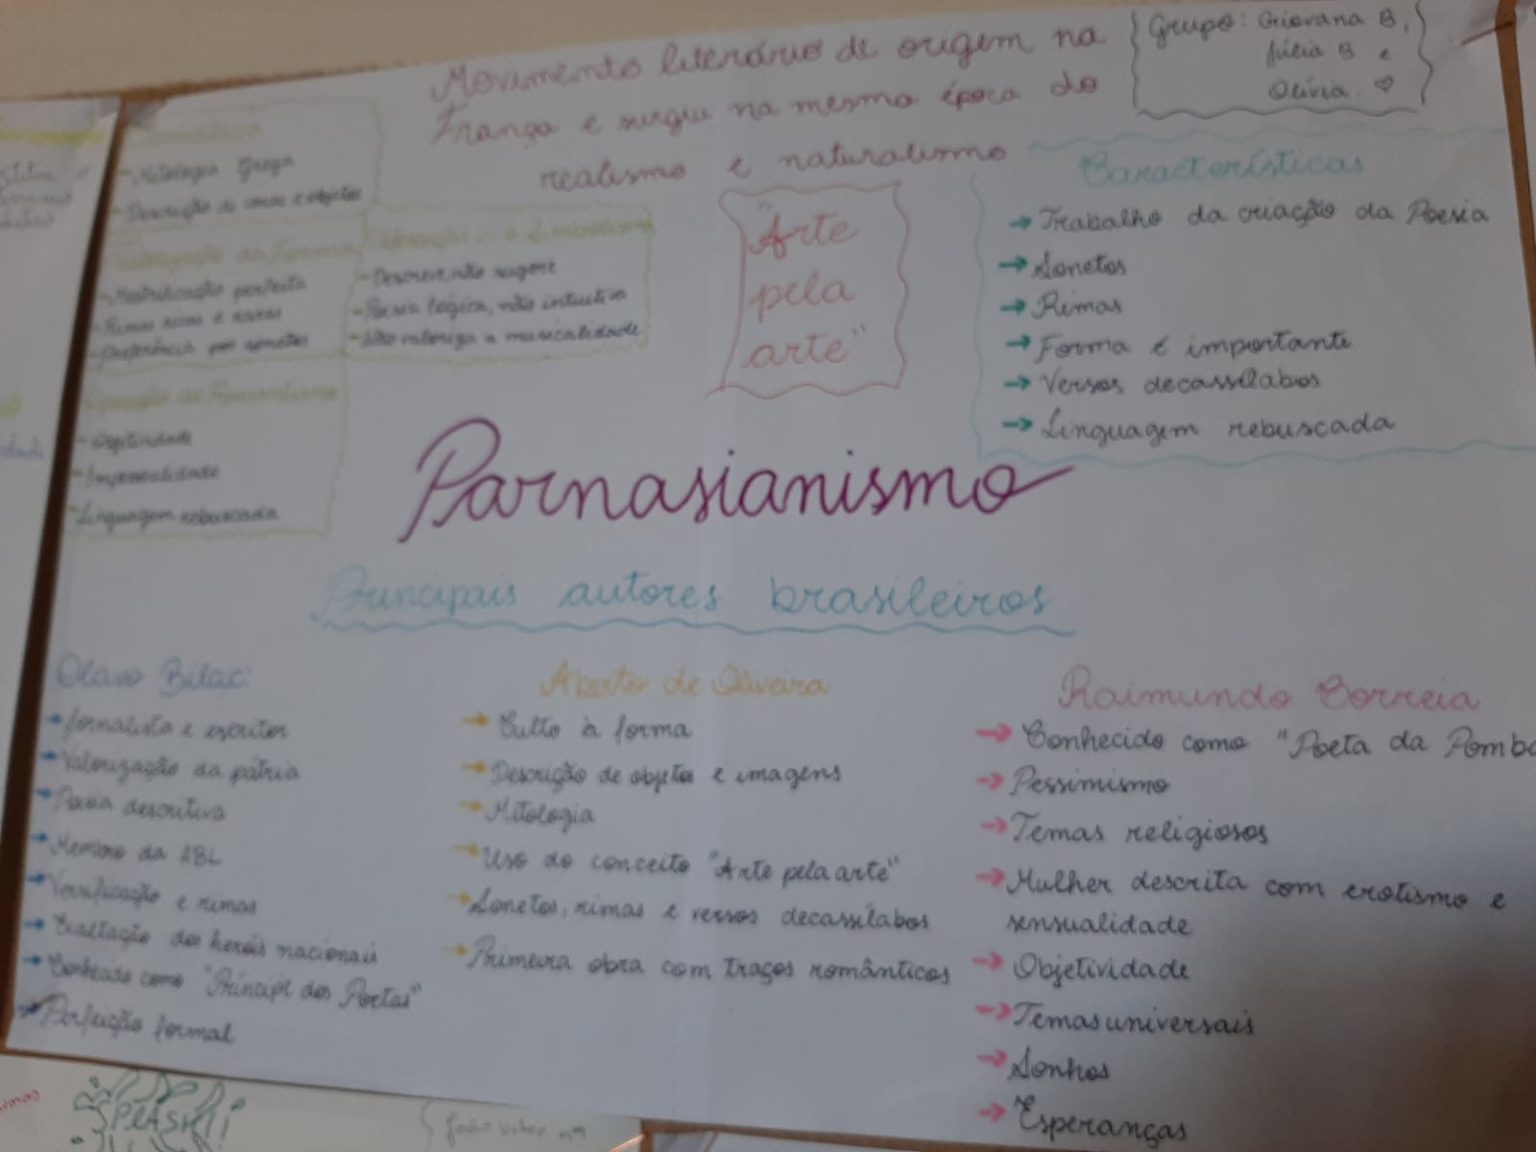 Movimento literário de origem na
França e surgiu na mesma época do
realismo e naturalismo
Grupo: Giovana B,
Júlia B e
Olívia. ♡
Temática
- Mitologia Grega
- Descrição de cenas e objetos
Valorização da Forma
- Metrificação perfeita
- Rimas ricas e raras
- Preferência por sonetos
Simbolismo
- Descreve, não sugere
- Poesia lógica, não intuitiva
- Não valoriza a musicalidade
Oposição ao Romantismo
- Objetividade
- Impessoalidade
- Linguagem rebuscada
"Arte
pela
arte"
Características
→ Trabalho da criação da Poesia
→ Sonetos
→ Rimas
→ Forma é importante
→ Versos decassílabos
→ Linguagem rebuscada
Parnasianismo
Principais autores brasileiros
Olavo Bilac:
→ Jornalista e escritor
→ Valorização da pátria
→ Poesia descritiva
→ Membro da ABL
→ Versificação e rimas
→ Exaltação dos heróis nacionais
→ Conhecido como "Príncipe dos Poetas"
→ Perfeição formal
Alberto de Oliveira
→ Culto à forma
→ Descrição de objetos e imagens
→ Mitologia
→ Uso do conceito "Arte pela arte"
→ Sonetos, rimas e versos decassílabos
→ Primeira obra com traços românticos
Raimundo Correia
→ Conhecido como "Poeta da Pomba
→ Pessimismo
→ Temas religiosos
→ Mulher descrita com erotismo e
sensualidade
→ Objetividade
→ Temas universais
→ Sonhos
→ Esperanças
SPLASH!
João Vitor